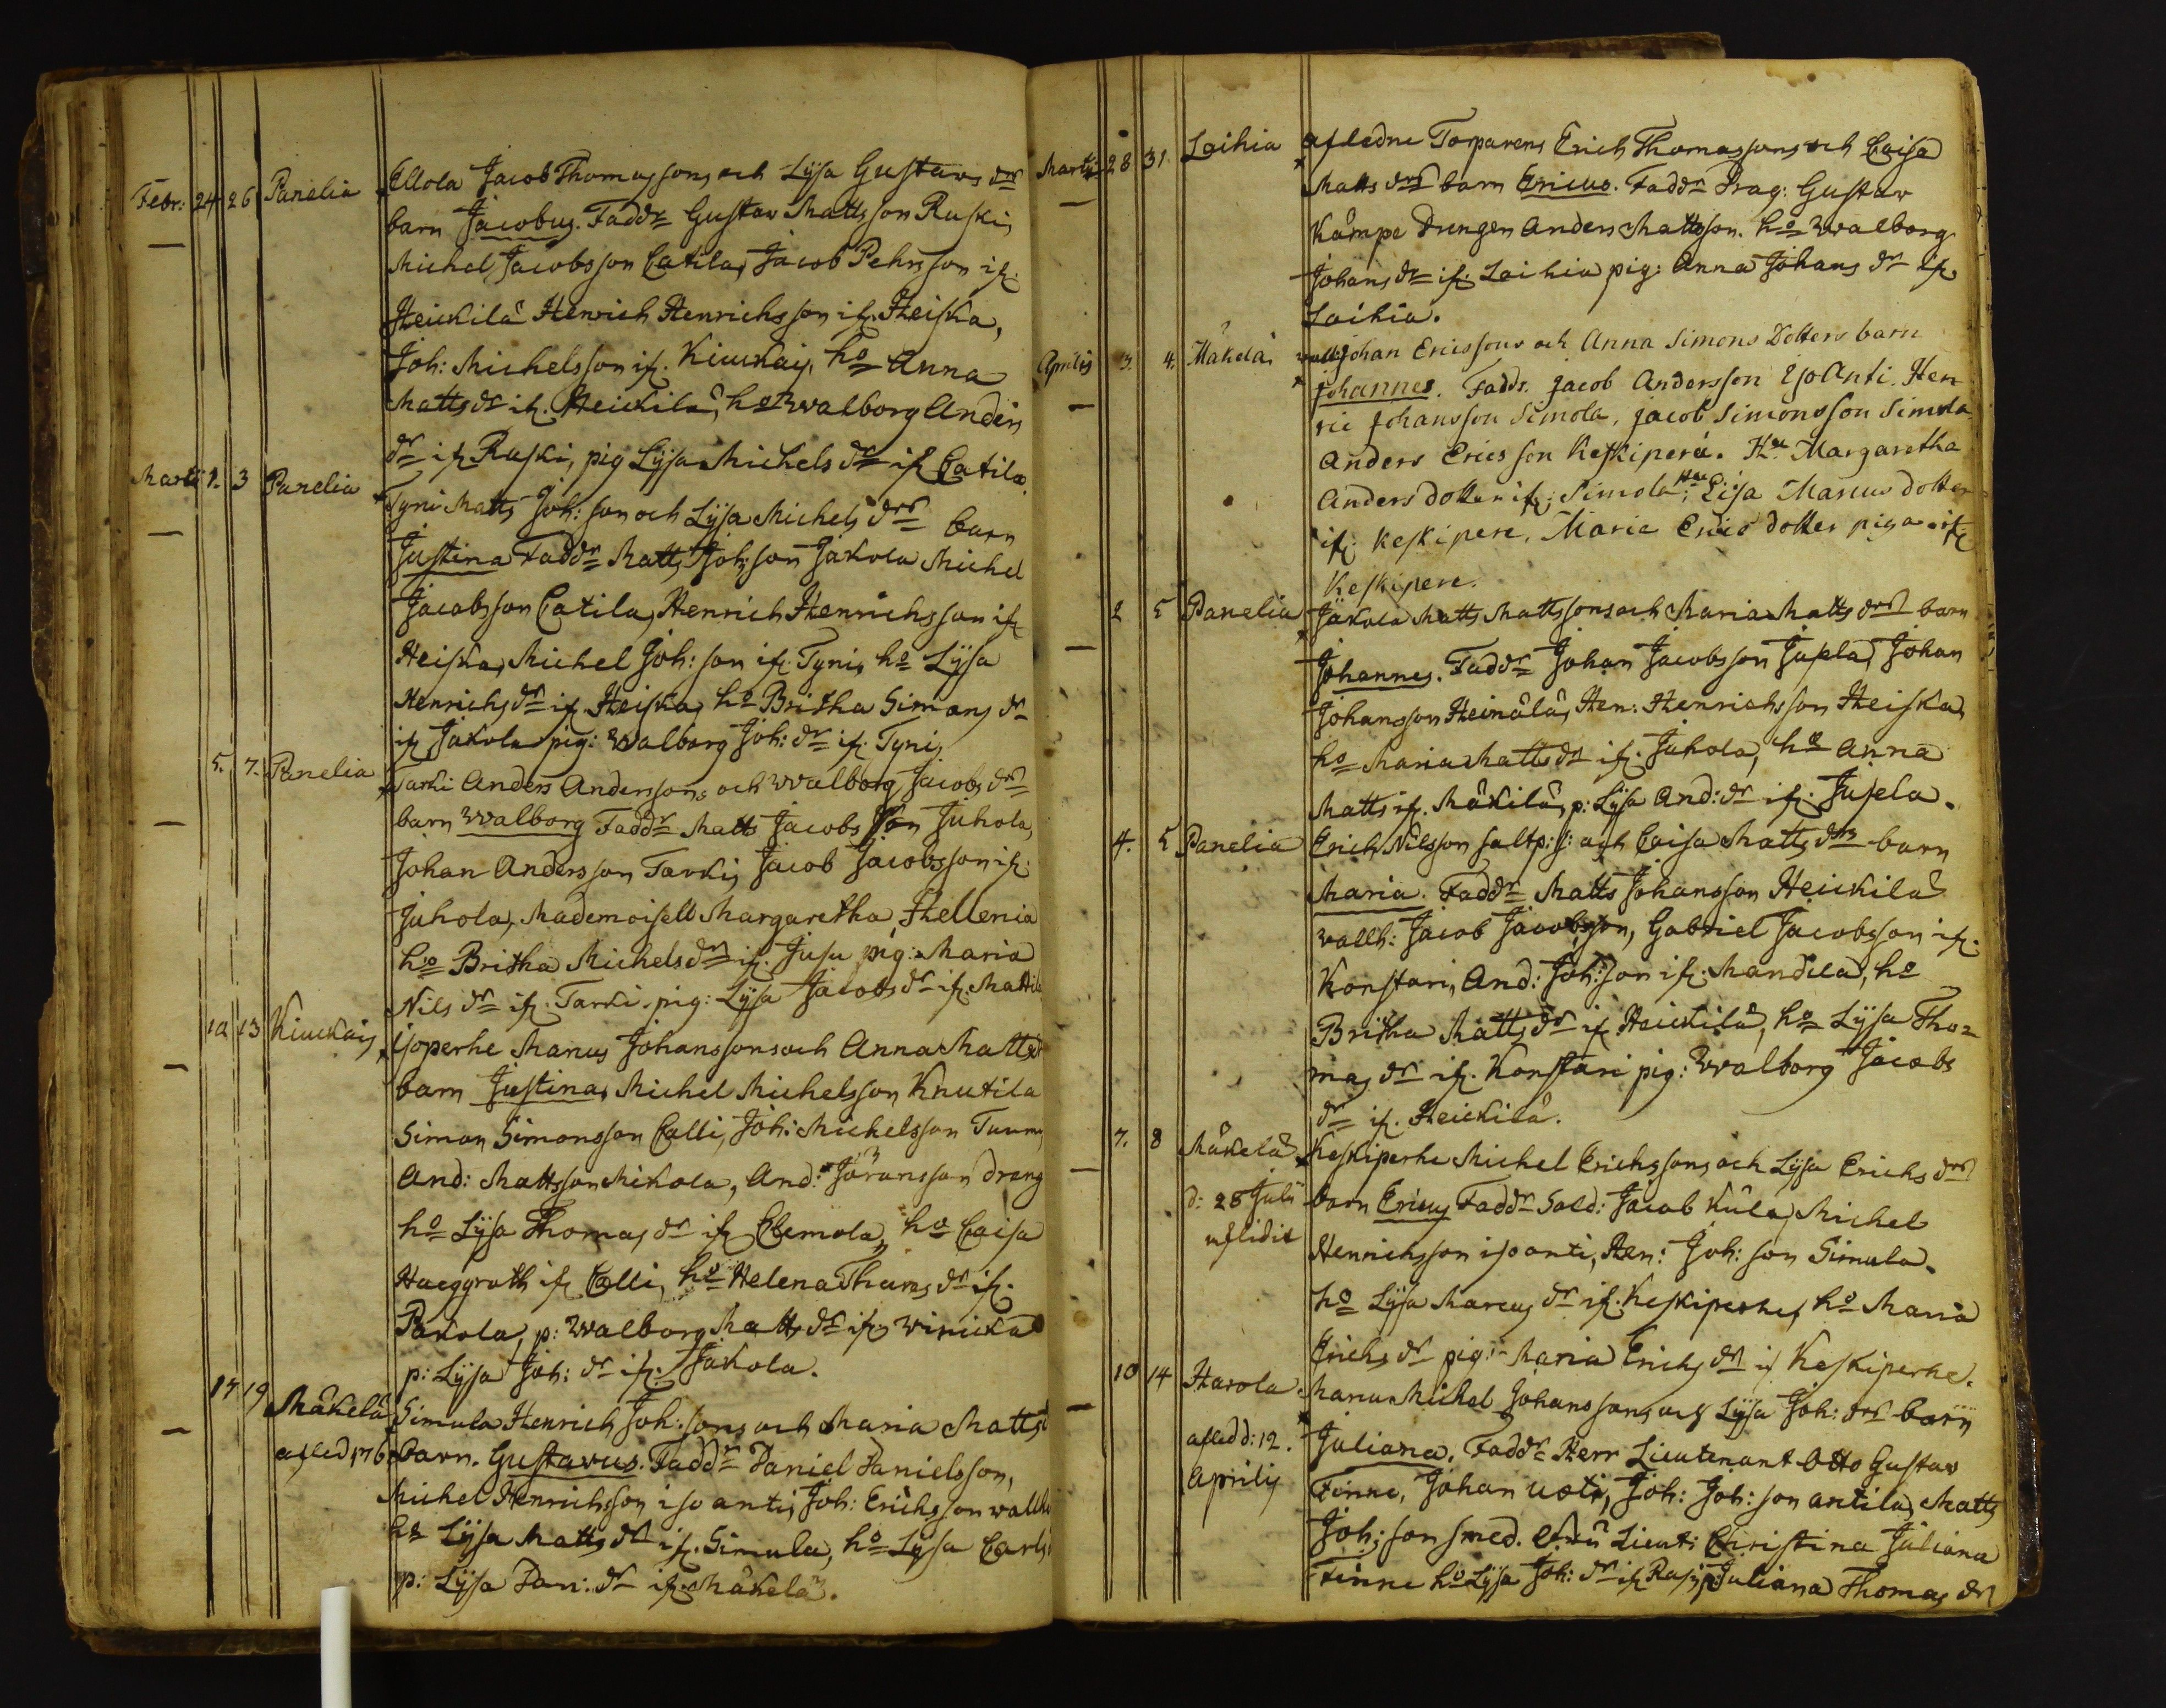 Febr: 24 26 Panelia Ellola Jacob Thomassons och Lÿsa Gustavs dr
barn Jacobus. Faddr Gustav Mattsson Ruski,
Michel Jacobsson Catila, Jacob Pehrsson if.
Heickilä Henrich Henrichsson if. Heiska,
Joh: Michelsson if. Kiuckais, ho Anna
Matts dr if. Heickilä, ho Walborg Anders
dr if. Ruski, pig Lÿsa Michels dr if Catila
Marti 1. 3 Panelia Tyni Matts Joh: son och Lÿsa Michels drs barn
Justina Faddr Matts Joh: son Jakola Michel
Jacobsson Catila, Henrich Henrichsson if
Heiska, Michel Joh: son if. Tyni, ho Lÿsa
Henrichs dr if Heiska, ho Britha Simons dr
if Jakola pig: Walborg Joh: dr if. Tyni,
5. 7. Panelia Tarki Anders Anderssons och Walborg Jacobs dr
barn Walborg Faddr Matts Jacobsson Juhola,
Johan Andersson Tarki, Jacob Jacobsson if.
Juhola, Mademoisell Margaretha Hellenia
ho Britha Michels dr if. Jusu pig: Maria
Nils dr if. Tarki. pig: Lÿsa Jacobs dr if. Mattila
12 13 Kiuckais Isoperhe Manus Johanssons och Anna Matts dr
barn Justina, Michel Michelsson Knutila
Simon Simonsson Calli, Joh: Michelsson
And: Mattsson Mikola, And: Jöransson dreng
ho Lÿsa Thomas dr if Clemola, ho Caisa
Haeggroth if Calli, ho Helena Thomas dr if.
Pakola, p: Walborg Matts dr if
p: Lÿsa Joh: dr if. Jakola.
17 19 Mäkelä Simula Henrich Joh: sons och Maria Matts
afled barn. Gustavus. Faddr Daniel Danielsson,
Michel Henrichsson iso anti, Joh: Erichsson
ho Lÿsa Matts dr if. Simula, ho Lÿsa Carls
p: Lÿsa Dan: dr if. Mäkelä.
Martii 28 31. Laihia afledne Torparens Erich Thomassons och Caisa
Matts drs barn Ericus. Faddr Drag: Gustav
Kämpe Drengen Anders Mattsson. ho Walborg
Johans dr if. Laihia pig: Anna Johans dr if.
Laihia.
Aprilis 3. 4. Mäkelä Johan Ericssons och Anna Simons Dotters barn
Johannes. Faddr. Jacob Andersson Iso Anti. Hen
ric Johansson Simola, Jacob Simonsson Simola
Anders Ericsson Keskiperä. Hu Margaretha
Anders dotter if. Simola; Hu Lisa Marcus dotter
if. Keskipere, Maria Erics dotter piga if
Keskipere.
2 5 Panelia Jakola Matts Mattssons och Maria Matts drs barn
Johannes. Faddr Johan Jacobsson Jupela, Johan
Johansson Heinälä, Hen: Henrichsson Heiska,
ho Maria Matts dr if. Juhola, ho Anna
Matts if. Mäkilä, p: Lÿsa And: dr if. Jupela.
4. 5 Panelia Erich Nilsson saltp: s: och Caisa Matts drs barn
Maria. Faddr Matts Johansson Heickilä
vallb: Jacob Jacobsson, Gabriel Jacobsson if.
Konstari, And: Joh: son if. Mandila, ho
Britha Matts dr if Heickilä, ho Lÿsa Tho=
mas dr if. Konstari pig: Walborg Jacobs
dr if. Heickilä.
7. 8 Mäkelä Keskiperhe Michel Erichssons och Lÿsa Erichs drs
d: 28 Julii barn Ericus Faddr Sold: Jacob Kula, Michel
Henrichsson iso anti, Hen: Joh: son Simula.
ho Lÿsa Marcus dr if. Keskiperhe, ho Maria
Erichs dr pig: Maria Erichs dr if Keskiperhe.
10 14 Harola Manu Michel Johanssons och Lÿsa Joh: drs barn
afled d: 12. Juliana. Faddr Herr Lieutenant Otto Gustav
Aprilis Finne, Johan Uoti, Joh: Joh: son antila, Matts
Joh: son smed. Lieut: Christina Juliana
Finne ho Lÿsa Joh: dr if Rasi, p: Juliana Thomas dr